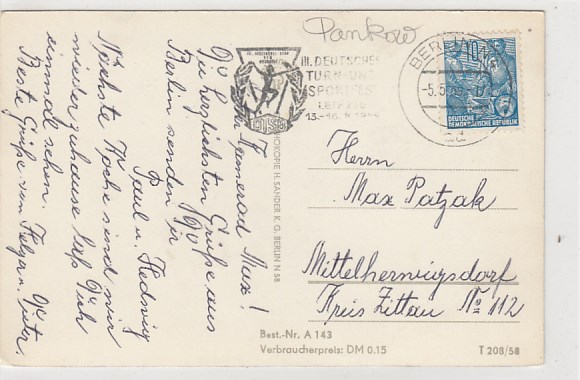 Pankow
III. DEUTSCHES
TURN- UND
SPORTFEST
LEIPZIG
13.-16. 8. 1959
1959
BERLIN
-5.5.59
10
DEUTSCHE
DEMOKRATISCHE REPUBLIK
Kamerad Max!
Die herzlichsten Grüße aus
Berlin senden Dir
Paul u. Hedwig
Nächste Woche sind wir
wieder zuhause laß Dich
einmal sehen.
Beste Grüße von Helga u. Peter.
H. SANDER K. G. BERLIN N 58
Herrn
Max Patzak
Mittelherwigsdorf
Kreis Zittau No 112
Best.-Nr. A 143
Verbraucherpreis: DM 0.15
T 208/58